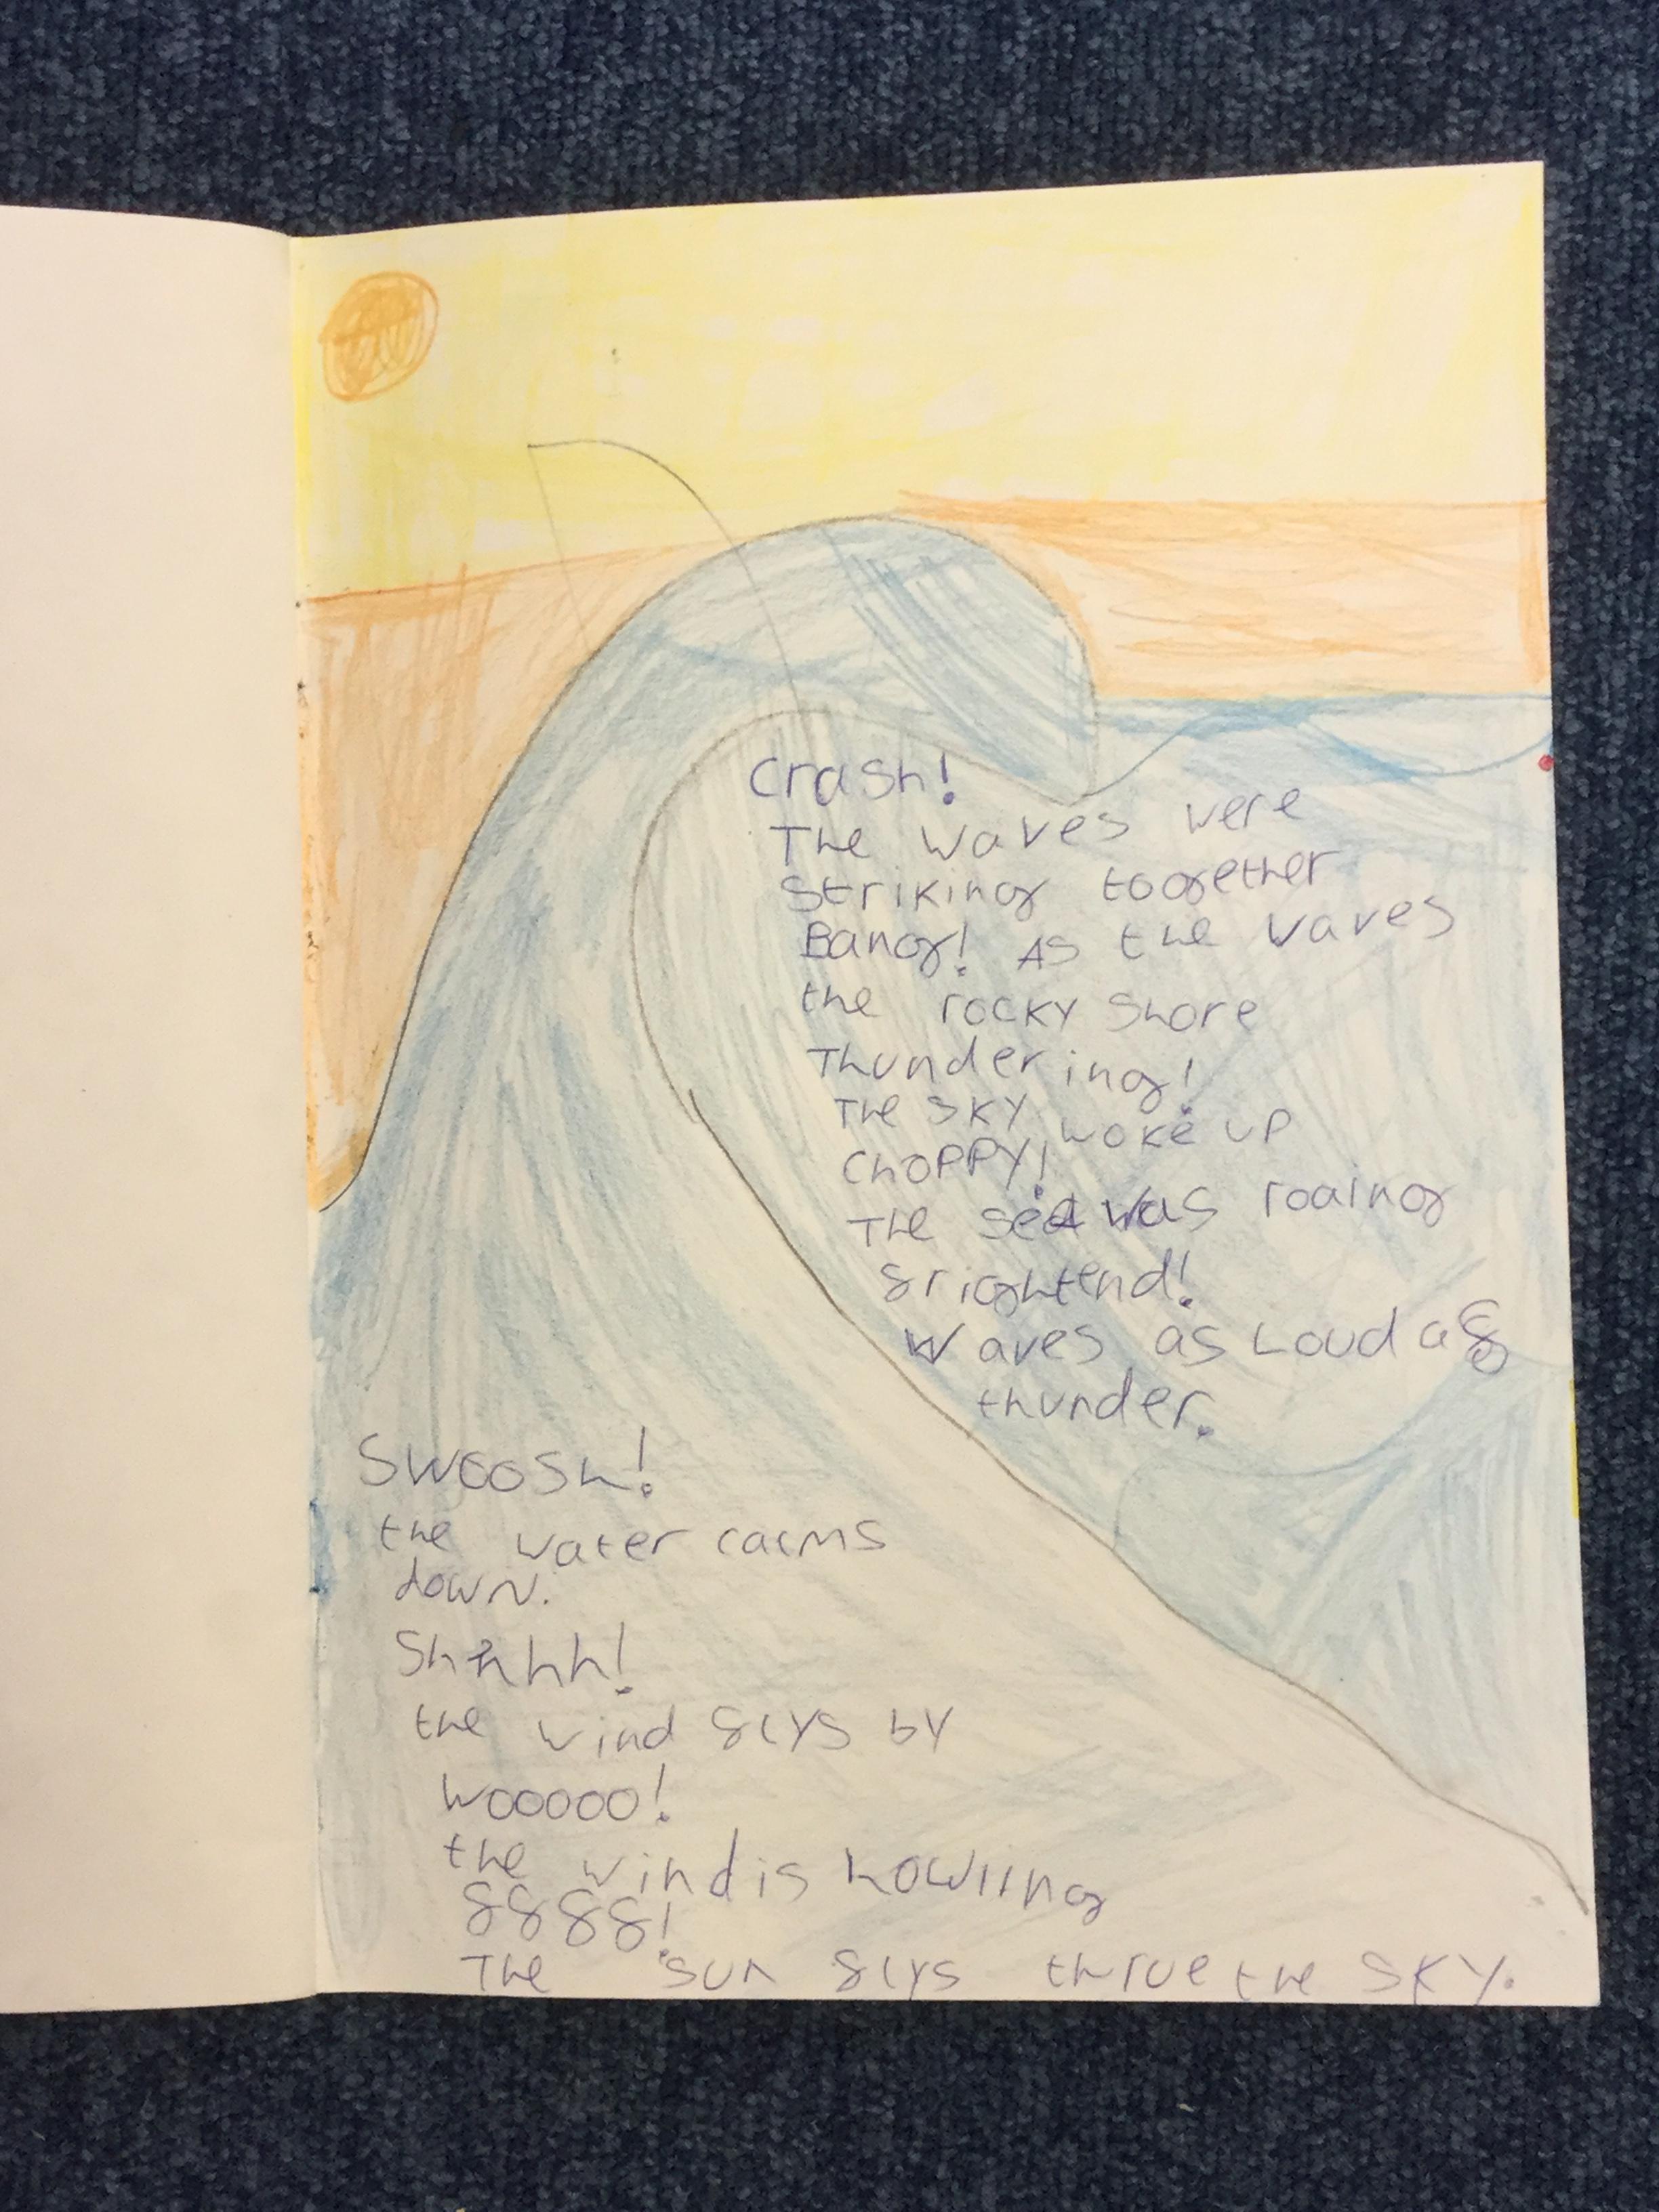 Crash!
The waves were
striking together
Bang! As the waves
the rocky shore
Thundering!
The sky woke up
Choppy!
The sea was roaring
frightend!
Waves as Loud af
thunder.
Swoosh!
the water calms
down.
Shhhh!
the wind flys by
Wooooo!
the wind is howling
ffff!
The sun flys thrue the sky.